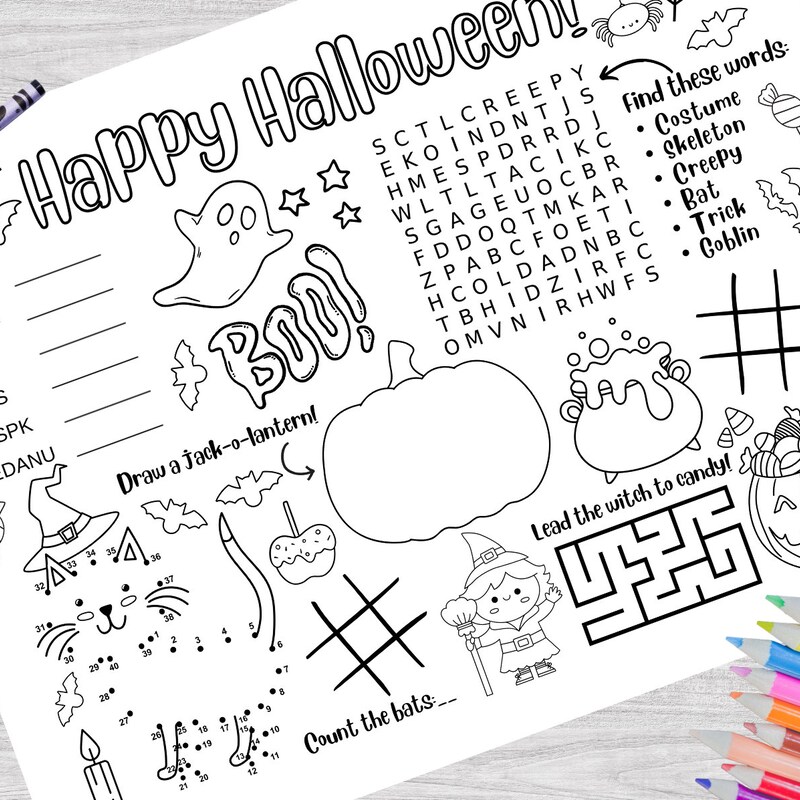 Happy Halloween!
Find these words:
• Costume
• Skeleton
• Creepy
• Bat
• Trick
• Goblin
S C T L C R E E P Y
E K O I N D N T J S
H M E S P D R R D J
W L T L T A C I K C
S G A G E U O C B R
F D D O Q T M K A R
Z P A B C F O E T I
H C O L D A D N B C
T B H I D Z I R F C
O M V N I R H W F S
BOO!
S
SPK
EDANU
Draw a jack-o-lantern!
Lead the witch to candy!
32 33 34 35 36
37
38
31
30
29 40 39 1 2 3 4 5 6
7
28 8
27 9
26 25 18 17 16 15 10
24 19 14 11
23 13
22 20 12
21
Count the bats:__